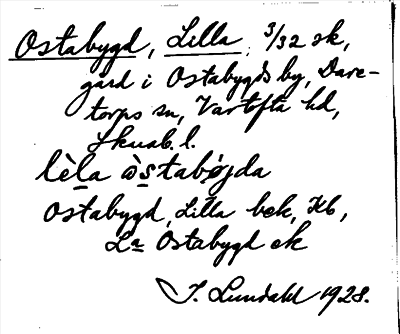 Ostabygd, Lilla, 3/32 sk,
gård i Ostabygds by, Dare-
torps sn, Vartofta hd,
Skarab. l.
lèla òstabøjda
Ostabygd, Lilla bek, Kb,
La Ostabygd ek
I. Lundahl 1928.